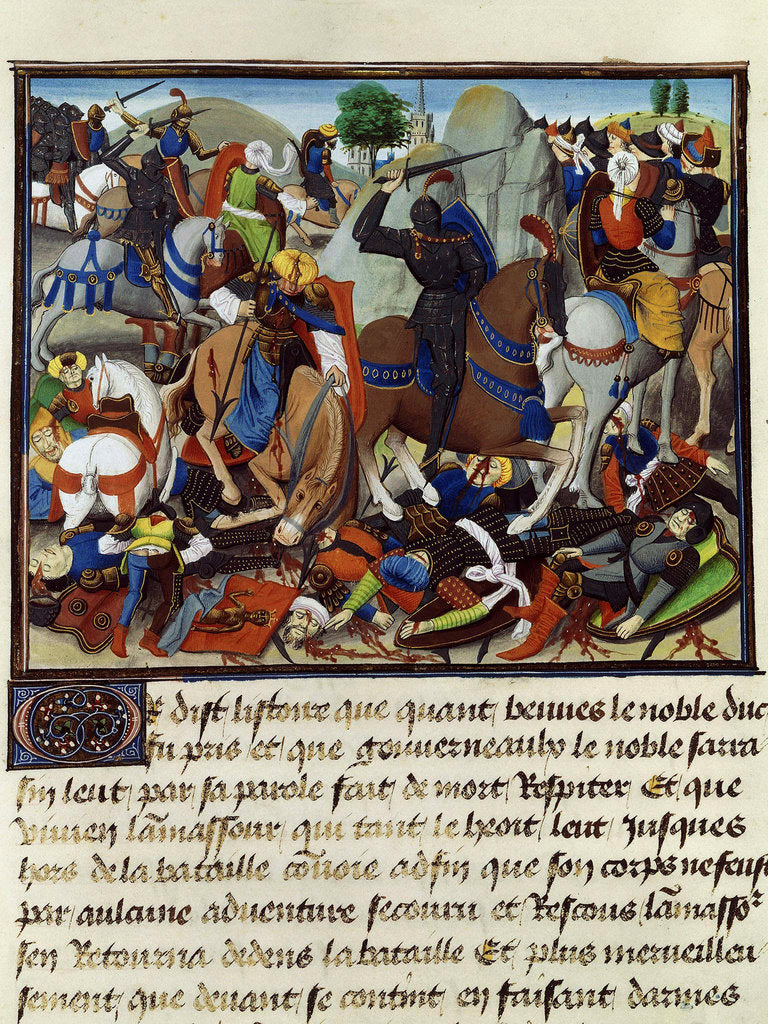 Or dist listoire que quant beuues le noble duc
fu pris et que gouuernaulx le noble sarra
sin leut par sa parole fait de mort Respiter Et que
viuien lamassour qui tant le heoit leut Jusques
hors de la bataille conuoie adfin que son corps ne feust
par aulcune aduenture secouru et Rescous lamassor
sen Retourna dedens la bataille Et plus merueilleu
sement que deuant se contint en faisant darmes